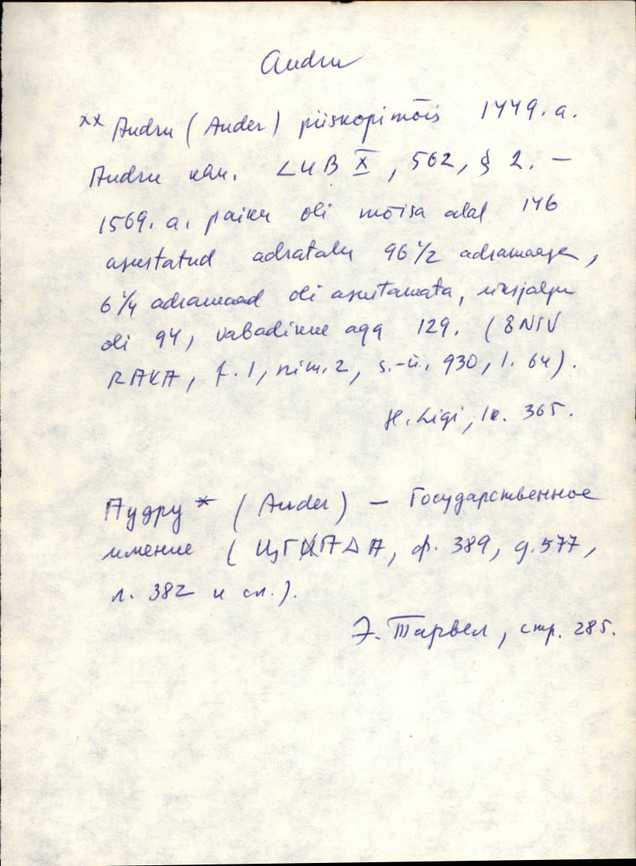 Audru
xx Audru (Auder) piiskopimõis 1449. a.
Audru khk. LUB X, 562, § 2. —
1569. a. paiku oli mõisa alal 146
asustatud adratalu 96 1/2 adramaaga,
6 1/4 adramaad oli asustamata, üksjalgu
oli 94, vabadikke aga 129. (ENSV
RAKA, f. 1, nim. 2, s.-ü. 930, l. 64).
H. Ligi, lk. 365.
Аудру * (Auder) — Государственное
имение (ЦГАДА, ф. 389, д. 577,
л. 382 и сл.).
Э. Тарвел, стр. 285.